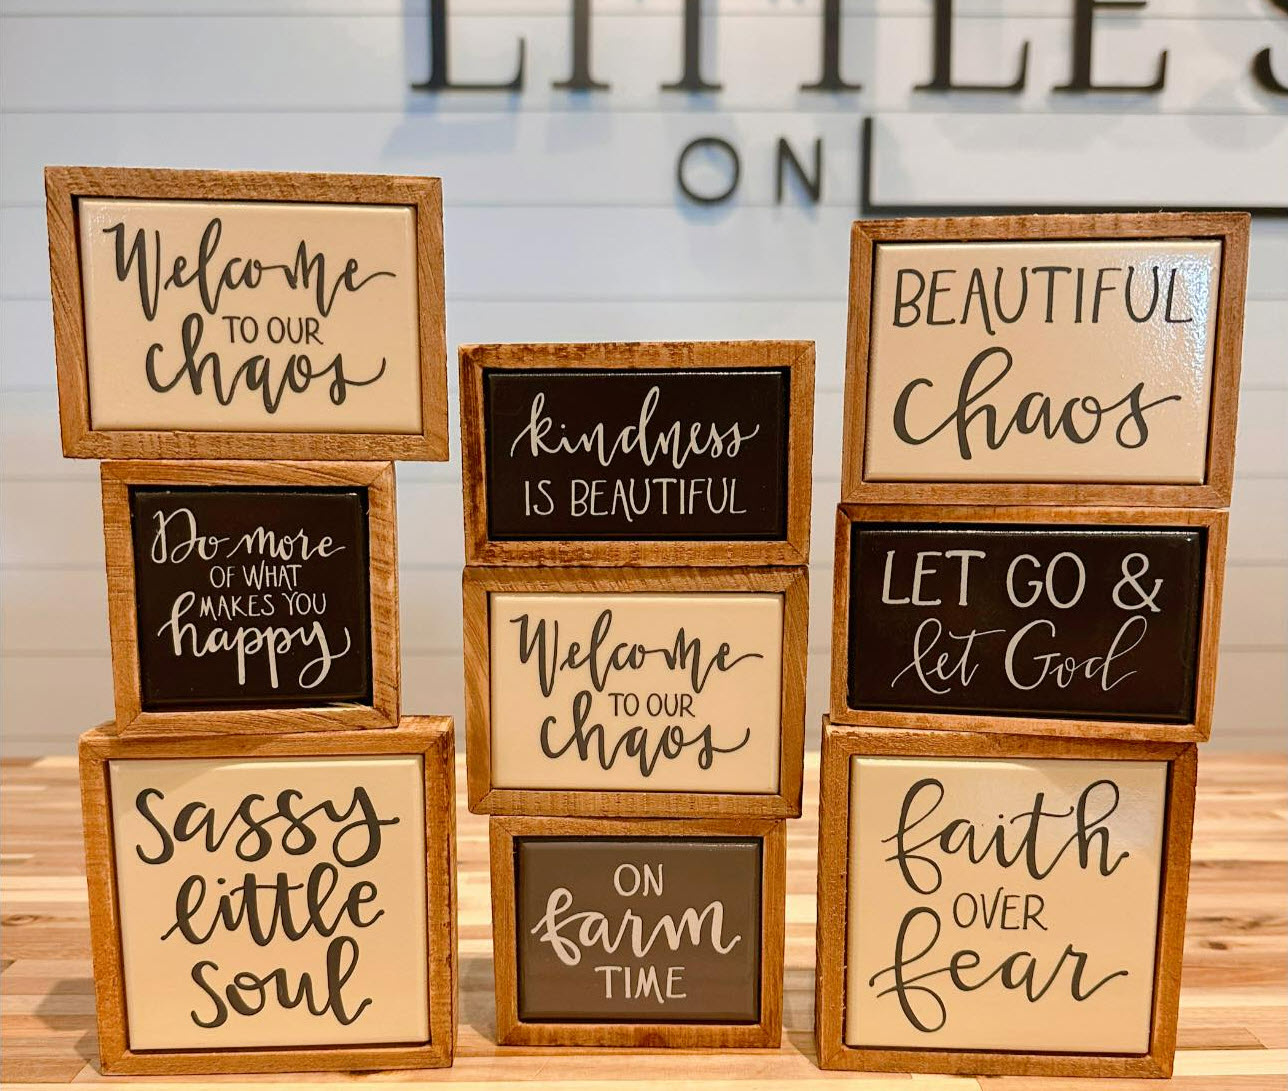 LITTLE
ON
Welcome
TO OUR
chaos
Do more
OF WHAT
MAKES YOU
happy
sassy
little
soul
kindness
IS BEAUTIFUL
Welcome
TO OUR
chaos
ON
farm
TIME
BEAUTIFUL
chaos
LET GO &
let God
faith
OVER
fear